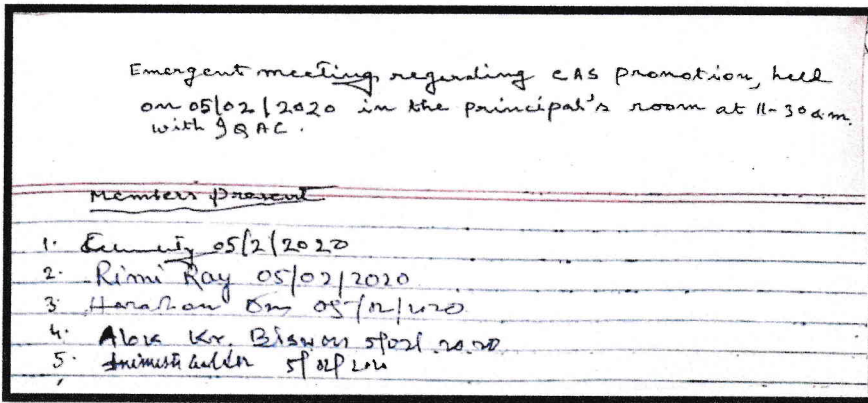 Emergent meeting regarding CAS promotion, held
on 05/02/2020 in the principal's room at 11-30 a.m.
with IQAC.
Members Present
1. 05/2/2020
2. Rimi Ray 05/02/2020
3. Haradhan Das 05/02/2020
4. Alok Kr. Biswas 5/02/2020
5. 5/02/2020